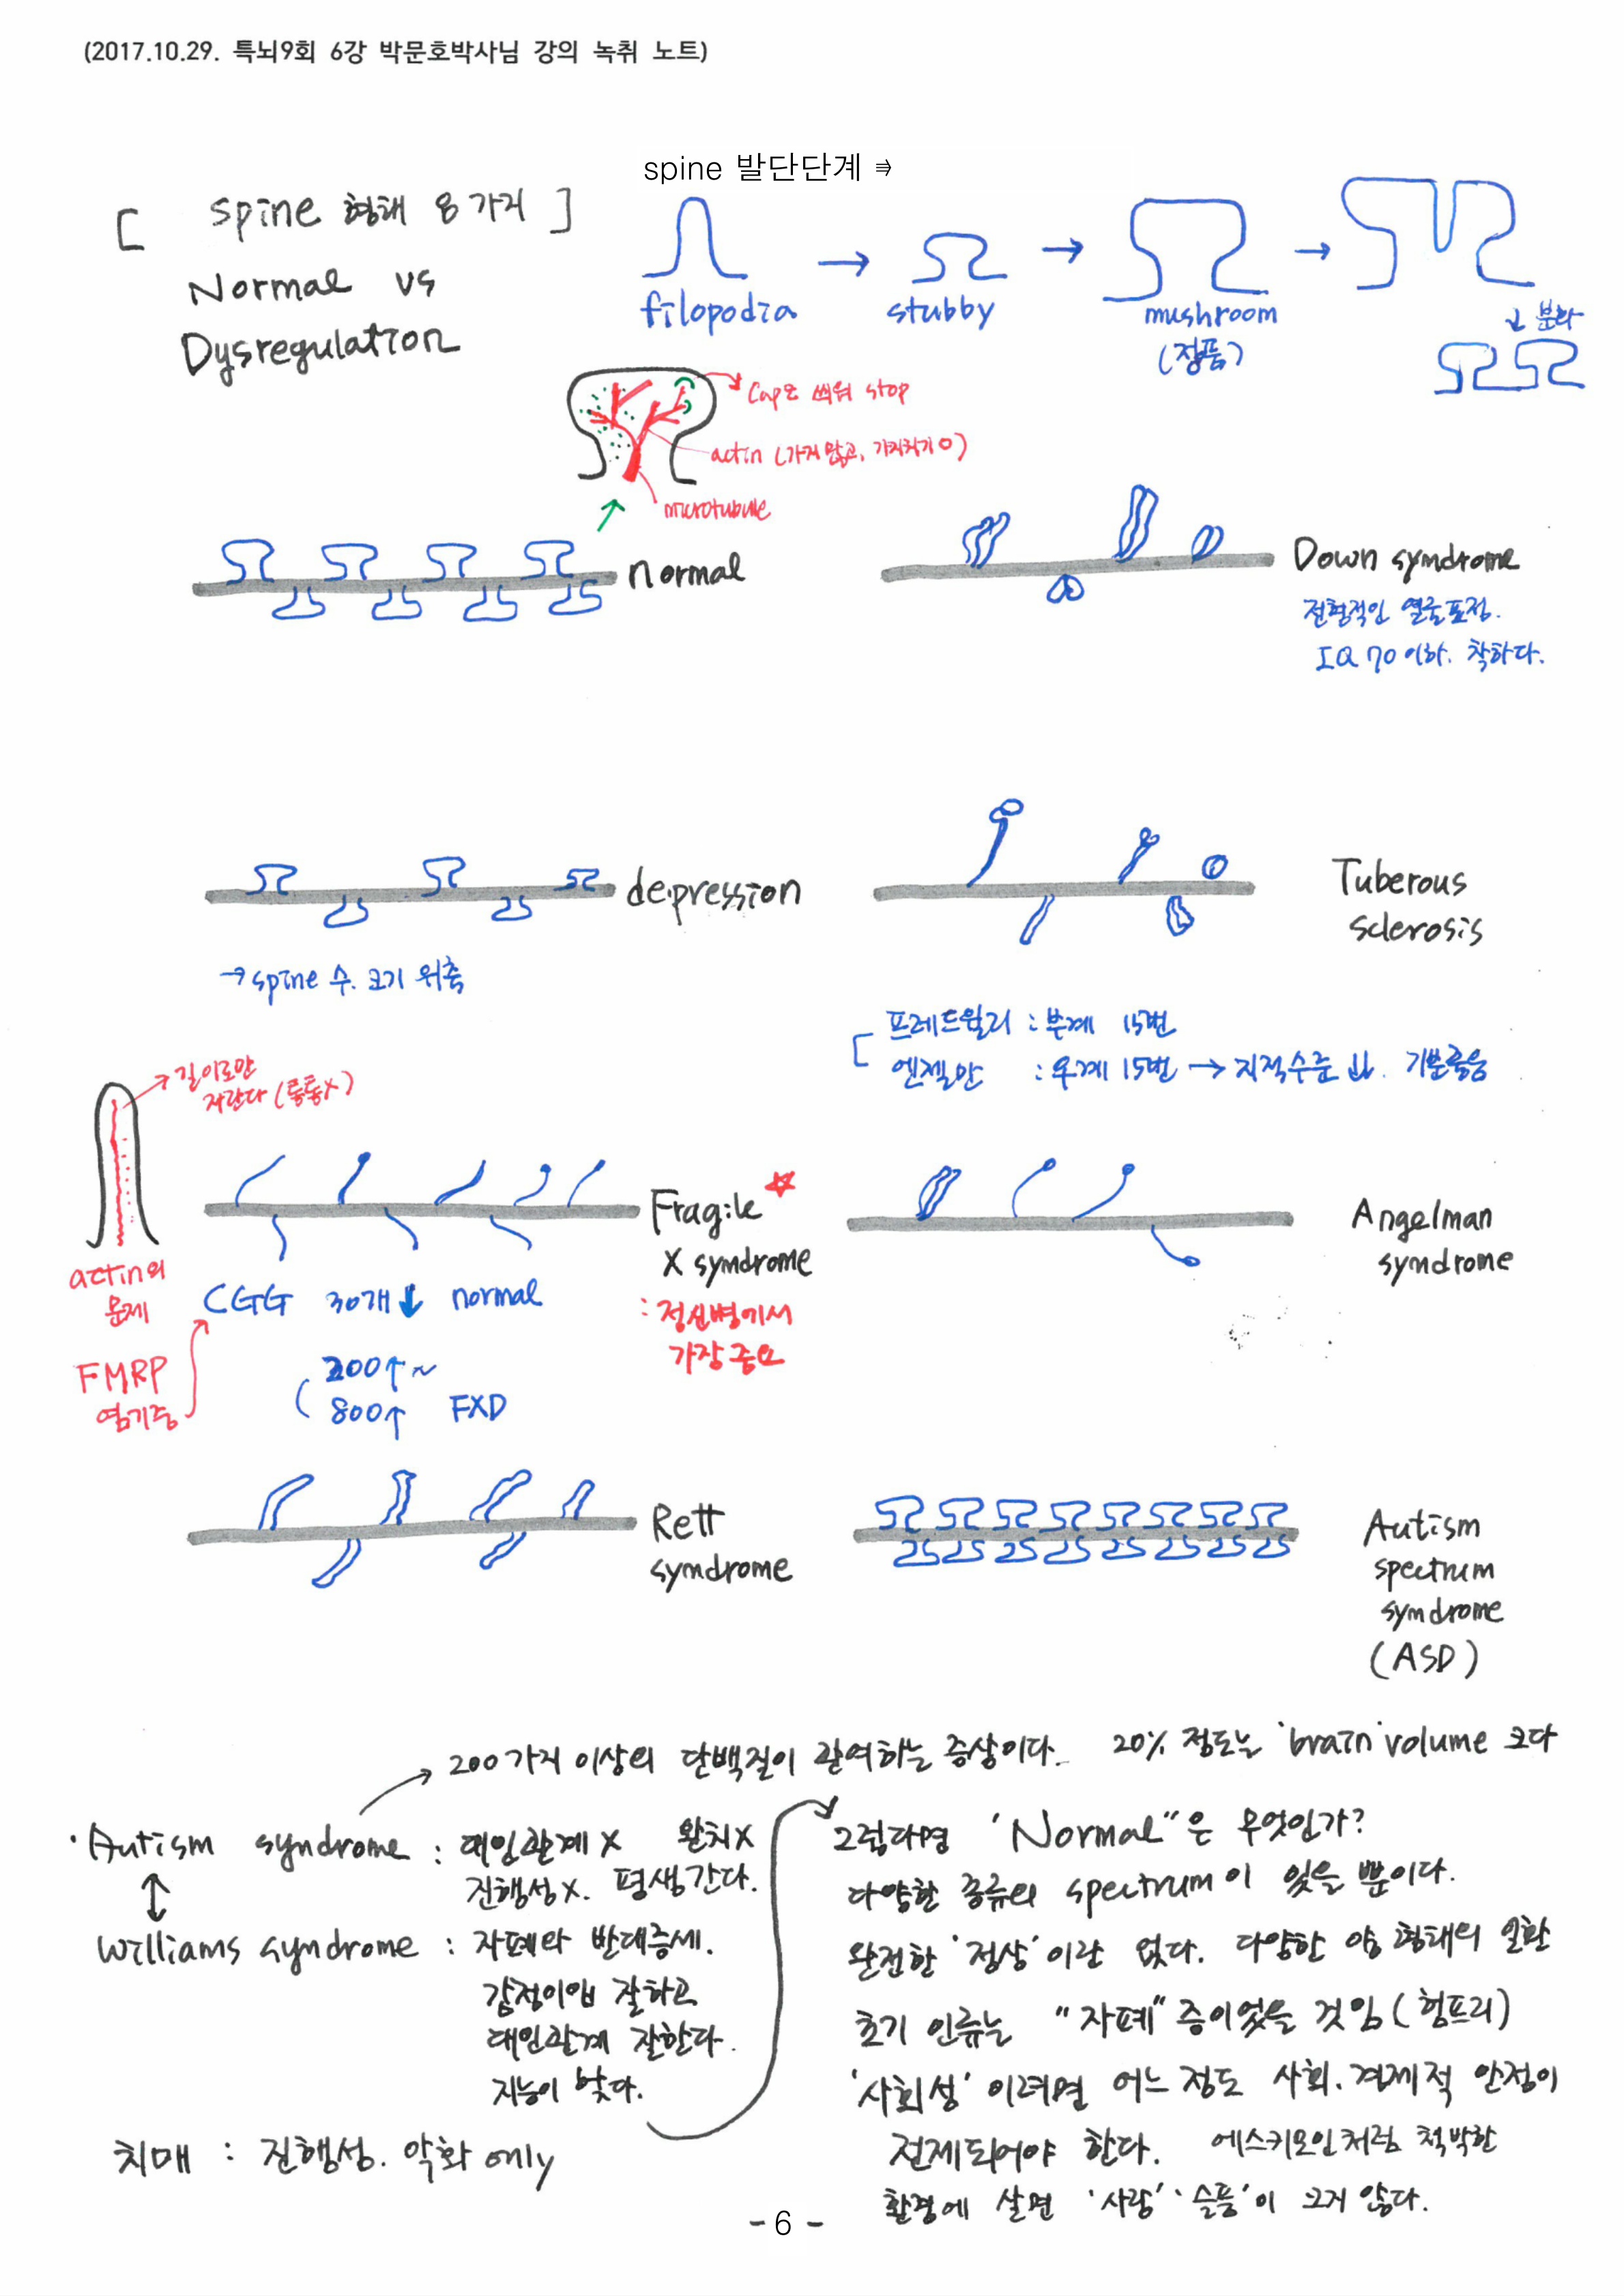 (2017.10.29. 특뇌9회 6강 박문호박사님 강의 녹취 노트)
spine 발단단계 ⇛
[ spine 형태 8가지 ]
Normal vs
Dysregulation
filopodia → stubby → mushroom →
(정품)
↓ 분화
Capz 씌워 stop
actin (가지 많고, 가지치기 O)
microtubule
normal
Down syndrome
전형적인 얼굴표정.
IQ 70 이하. 착하다.
depression
→ spine 수. 크기 위축
Tuberous
sclerosis
[ 프레드윌리 : 부계 15번
엔젤만 : 모계 15번 → 지적수준 ↓↓. 기분좋음
→ 길이로만
자란다 (통통X)
actin의
문제
FMRP
염기중
Fragile ☆
X syndrome
: 정신병에서
가장 중요
CGG 30개↓ normal
( 200↑~
800↑ FXD
Angelman
syndrome
Rett
syndrome
Autism
spectrum
syndrome
(ASD)
→ 200가지 이상의 단백질이 관여하는 증상이다. 20% 정도는 'brain' volume 크다
· Autism syndrome : 대인관계X 완치X
진행성X. 평생간다.
↕
Williams syndrome : 자폐와 반대증세.
감정이입 잘하고
대인관계 잘한다.
지능이 낮다.
치매 : 진행성. 악화 only
그렇다면 'Normal"은 무엇인가?
다양한 종류의 spectrum이 있을 뿐이다.
완전한 '정상'이란 없다. 다양한 형태의 일환
초기 인류는 "자폐"증이었을 것임 (험프리)
'사회성'이려면 어느 정도 사회.경제적 안정이
전제되어야 한다. 에스키모인처럼 척박한
환경에 살면 '사랑' '슬픔'이 크지 않다.
- 6 -